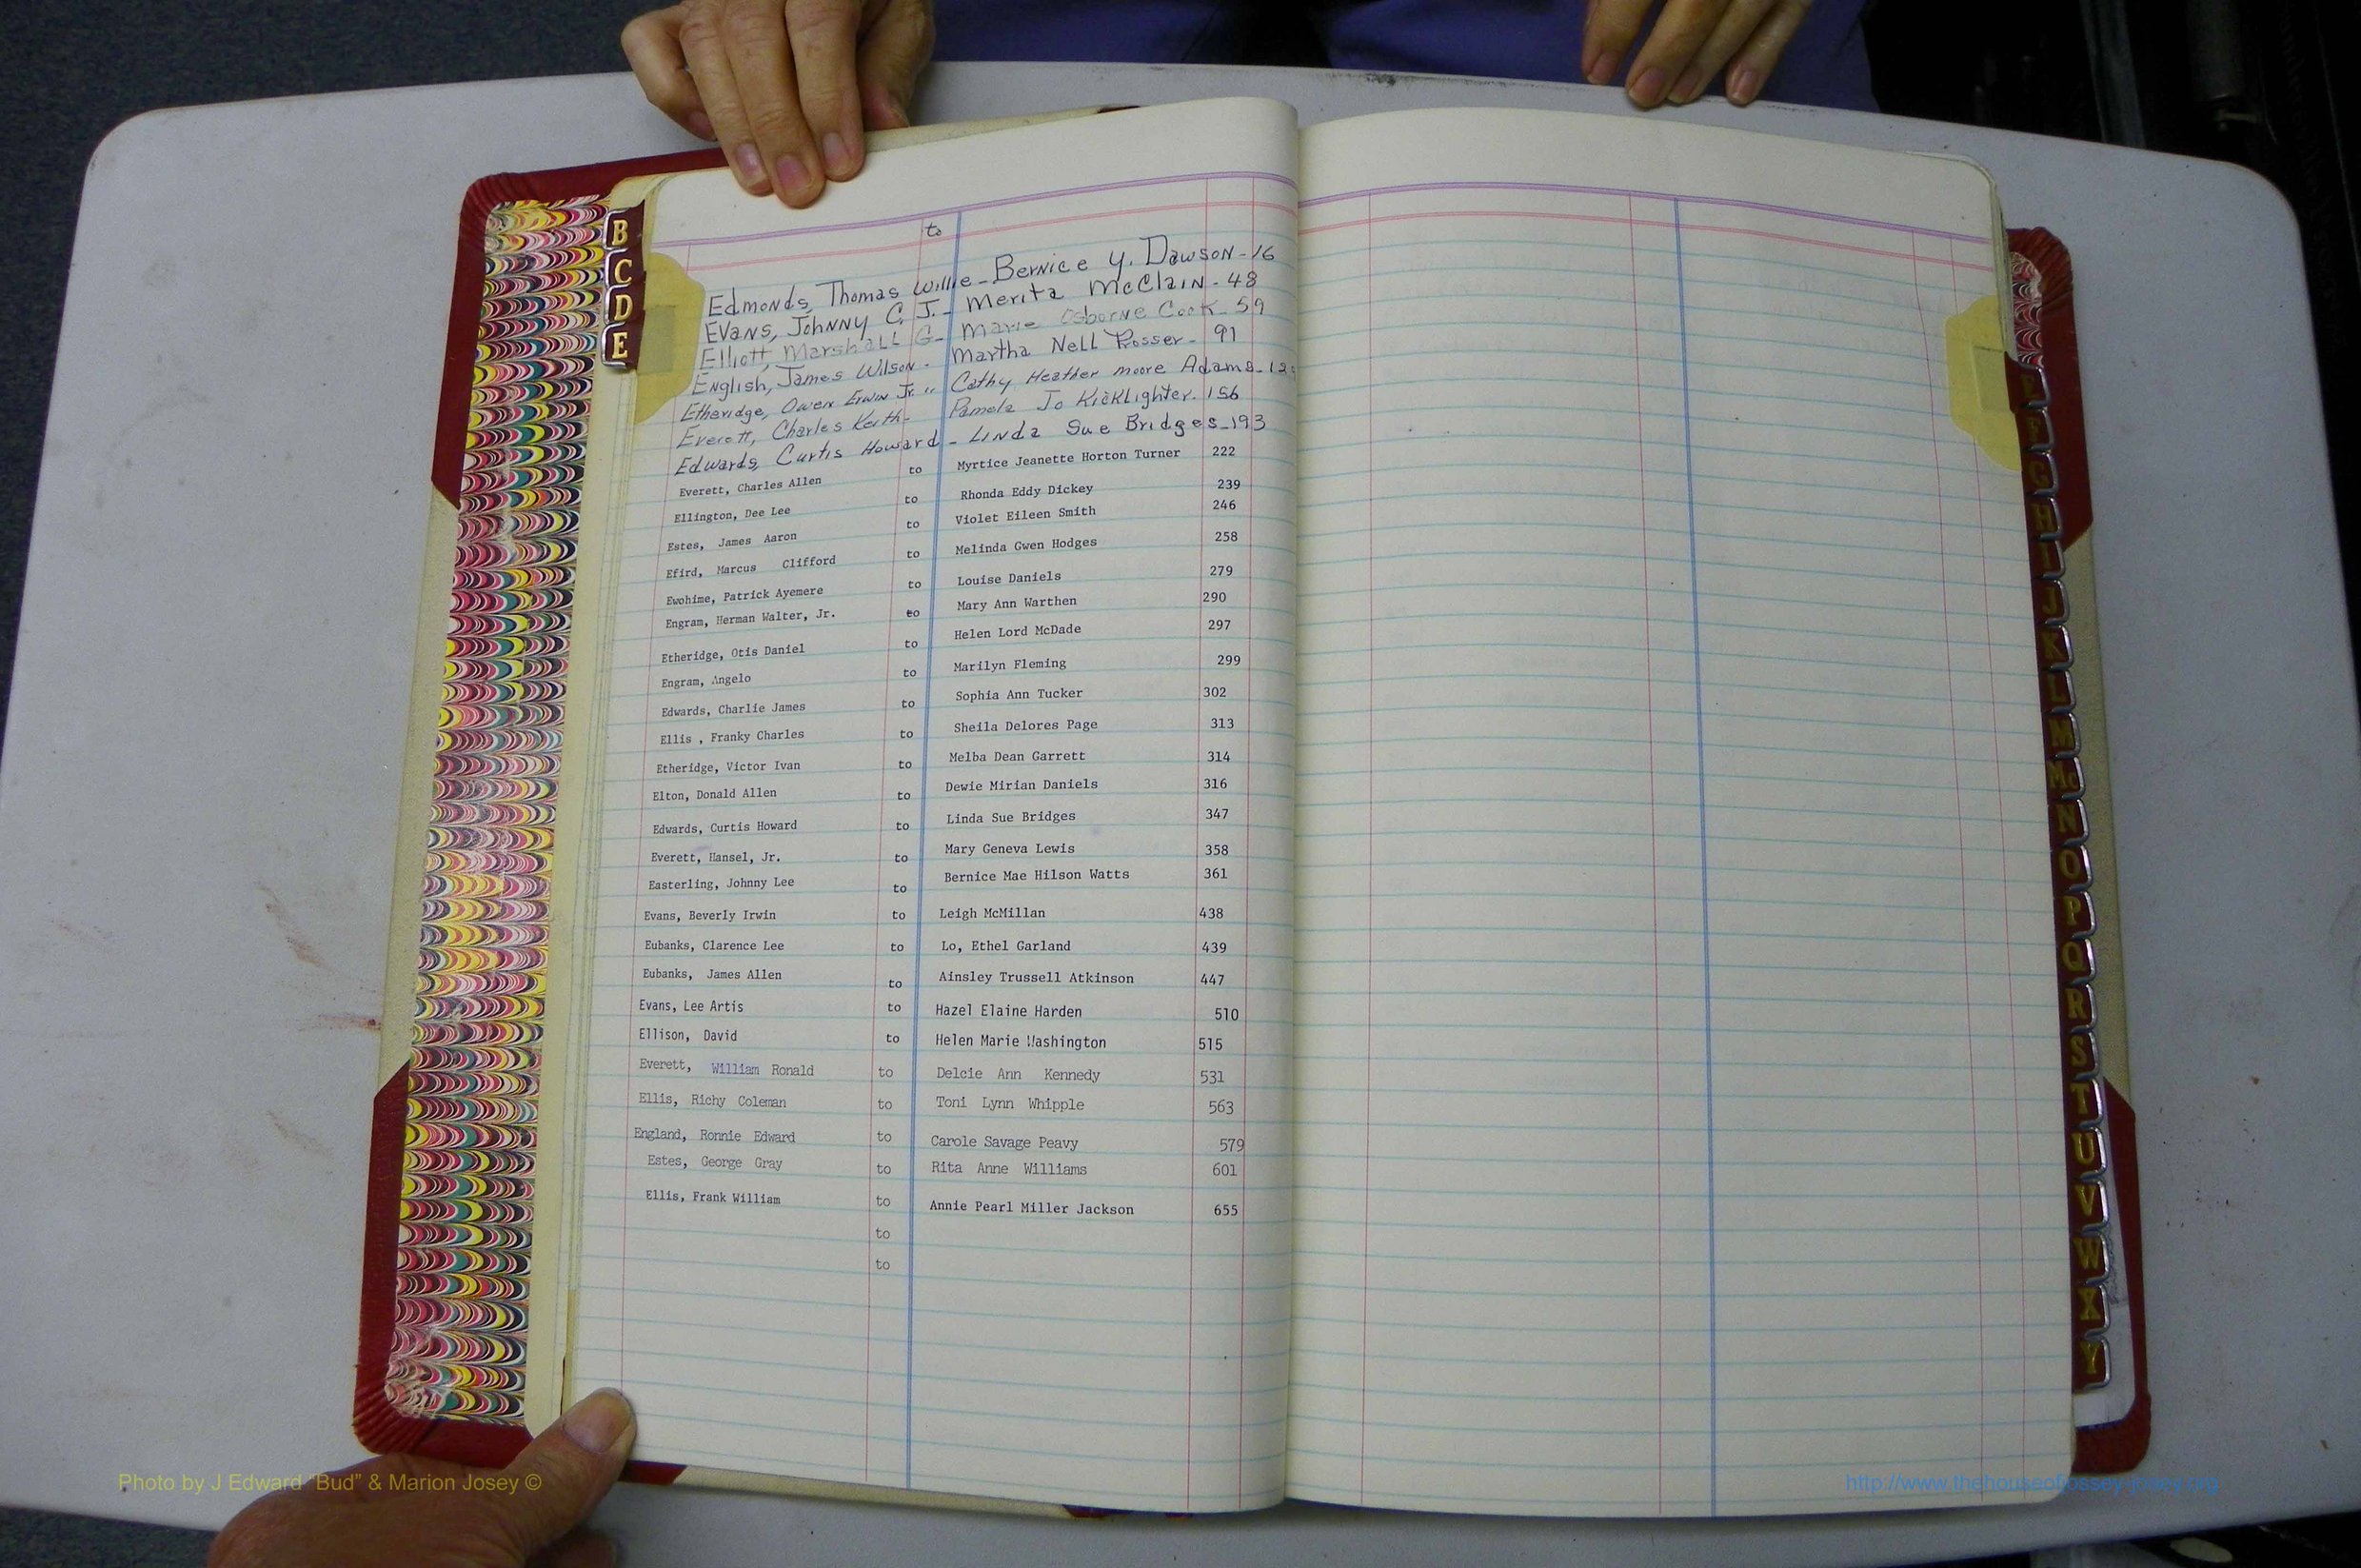 to
Edmonds, Thomas Willie - Bernice Y. Dawson - 16
Evans, Johnny C. J. - Merita McClain - 48
Elliott, Marshall G - Marie Osborne Cook - 59
English, James Wilson - Martha Nell Prosser - 91
Etheridge, Owen Erwin Jr. - Cathy Heather Moore Adams -
Everett, Charles Keith - Pamela Jo Kicklighter - 156
Edwards, Curtis Howard - Linda Sue Bridges - 193
Everett, Charles Allen to Myrtice Jeanette Horton Turner 222
Ellington, Dee Lee to Rhonda Eddy Dickey 239
Estes, James Aaron to Violet Eileen Smith 246
Efird, Marcus Clifford to Melinda Gwen Hodges 258
Ewohime, Patrick Ayemere to Louise Daniels 279
Engram, Herman Walter, Jr. to Mary Ann Warthen 290
Etheridge, Otis Daniel to Helen Lord McDade 297
Engram, Angelo to Marilyn Fleming 299
Edwards, Charlie James to Sophia Ann Tucker 302
Ellis , Franky Charles to Sheila Delores Page 313
Etheridge, Victor Ivan to Melba Dean Garrett 314
Elton, Donald Allen to Dewie Mirian Daniels 316
Edwards, Curtis Howard to Linda Sue Bridges 347
Everett, Hansel, Jr. to Mary Geneva Lewis 358
Easterling, Johnny Lee to Bernice Mae Hilson Watts 361
Evans, Beverly Irwin to Leigh McMillan 438
Eubanks, Clarence Lee to Lo, Ethel Garland 439
Eubanks, James Allen to Ainsley Trussell Atkinson 447
Evans, Lee Artis to Hazel Elaine Harden 510
Ellison, David to Helen Marie Washington 515
Everett, William Ronald to Delcie Ann Kennedy 531
Ellis, Richy Coleman to Toni Lynn Whipple 563
England, Ronnie Edward to Carole Savage Peavy 579
Estes, George Gray to Rita Anne Williams 601
Ellis, Frank William to Annie Pearl Miller Jackson 655
to
to
B
C
D
E
F
G
H
I
J
K
L
M
Mc
N
O
P
Q
R
S
T
U
V
W
X
Y
Photo by J Edward "Bud" & Marion Josey ©
http://www.thehouseofjossey-josey.org